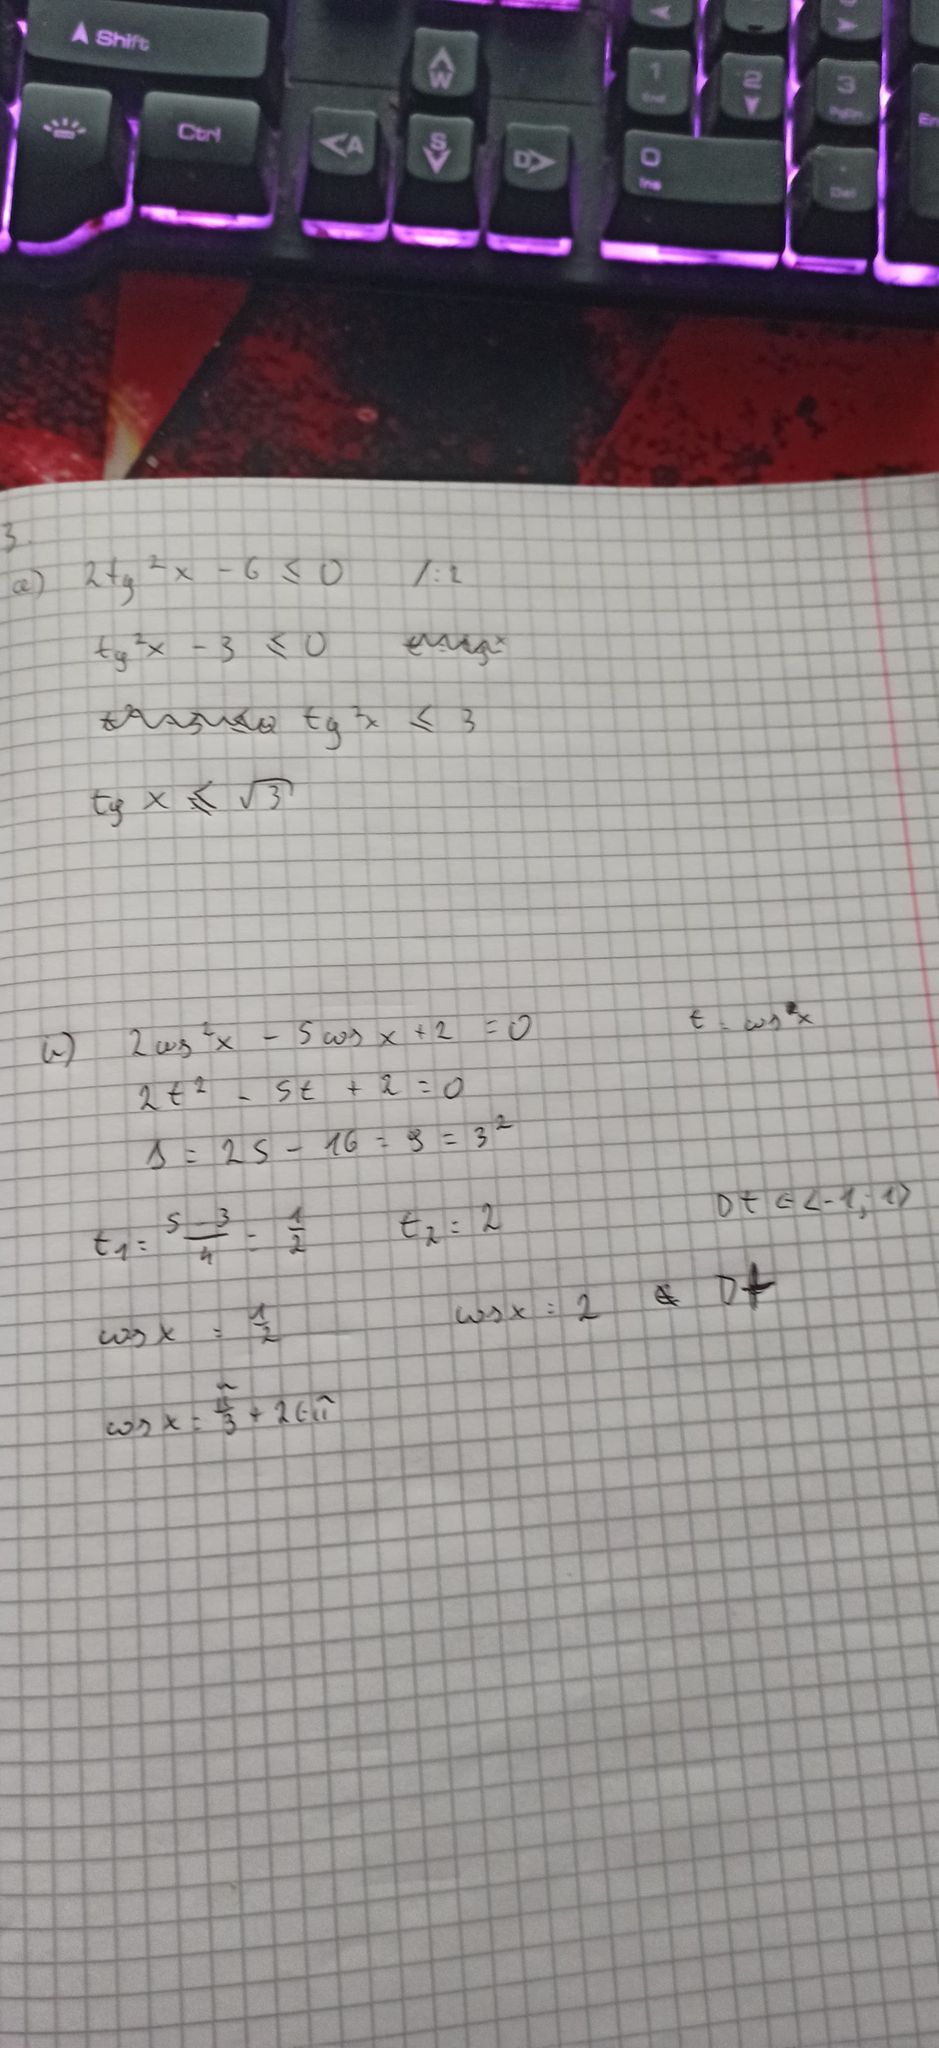 Shift
W
1
End
2
3
PgDn
Ctrl
A
S
D
0
Ins
.
Del
En
3.
a) 2tg²x - 6 ≤ 0 /:2
tg²x - 3 ≤ 0
tg²x ≤ 3
tg x ≤ √3
b) 2cos²x - 5cos x + 2 = 0 t = cos x
2t² - 5t + 2 = 0
Δ = 25 - 16 = 9 = 3²
t₁ = (5-3)/4 = 1/2 t₂ = 2 Dt ∈ <-1; 1>
cos x = 1/2 cos x = 2 ∉ Dt
cos x = π/3 + 2kπ